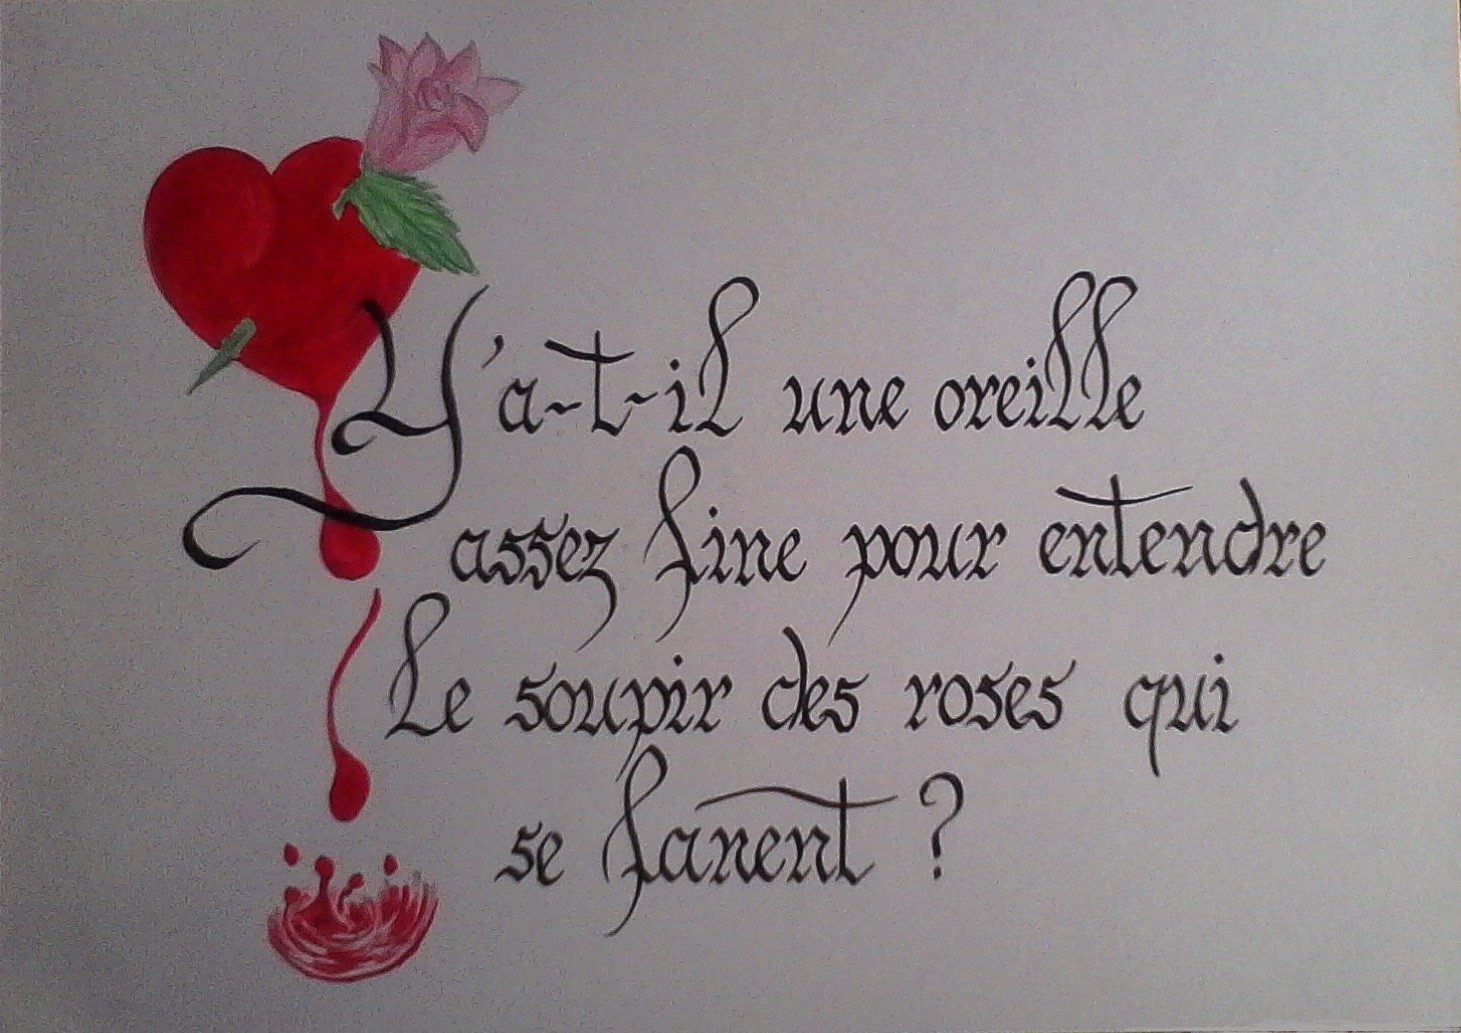 Y'a-t-il une oreille
assez fine pour entendre
Le soupir des roses qui
se fanent ?